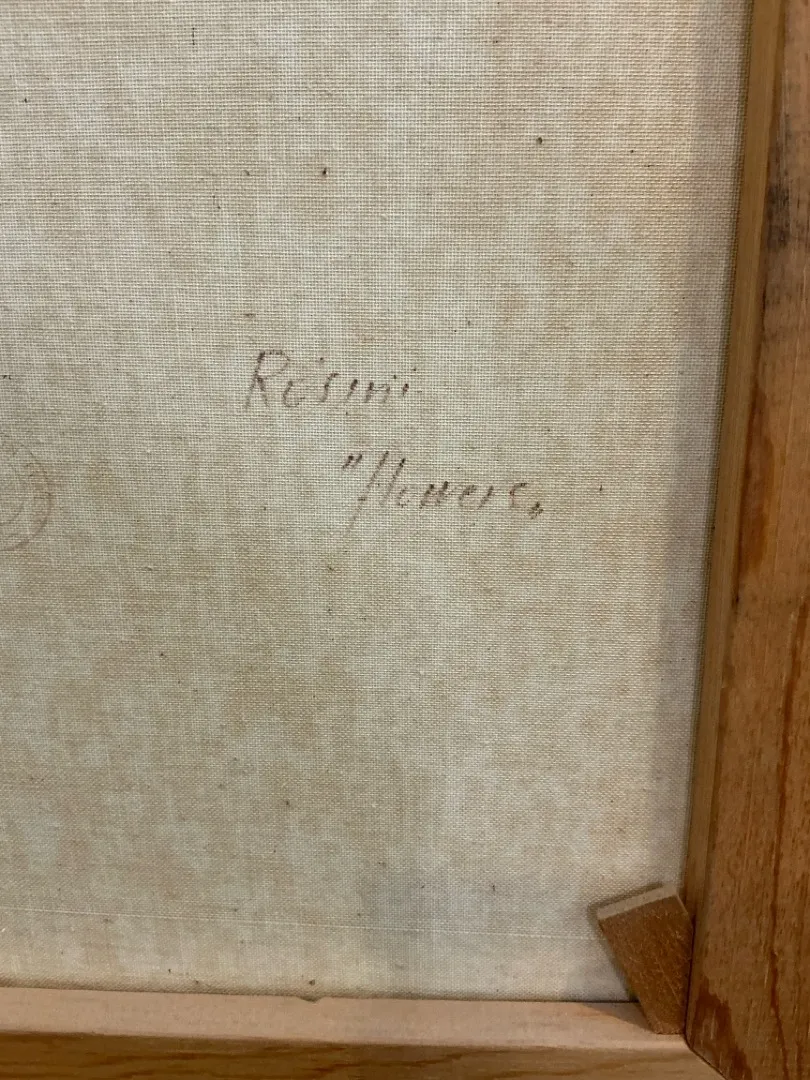 Résini
"flowers„